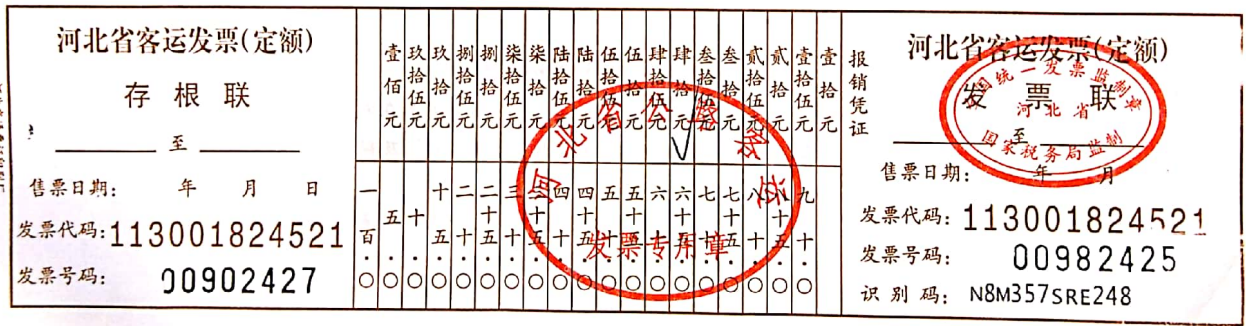 河北省客运发票(定额)
存根联
至
售票日期: 年 月 日
发票代码:113001824521
发票号码: 00902427
壹佰元
玖拾伍元
玖拾元
捌拾伍元
捌拾元
柒拾伍元
柒拾元
陆拾伍元
陆拾元
伍拾伍元
伍拾元
肆拾伍元
肆拾元
叁拾伍元
叁拾元
贰拾伍元
贰拾元
壹拾伍元
壹拾元
一百·○
五·○
十·○
十五·○
二十·○
二十五·○
三十·○
三十五·○
四十·○
四十五·○
五十·○
五十五·○
六十·○
六十五·○
七十·○
七十五·○
八十·○
八十五·○
九十·○
河北省公路客运
发票专用章
报销凭证
河北省客运发票(定额)
发票联
全国统一发票监制章
河北省
国家税务局监制
至
售票日期: 年 月
发票代码: 113001824521
发票号码: 00982425
识别码: N8M357SRE248